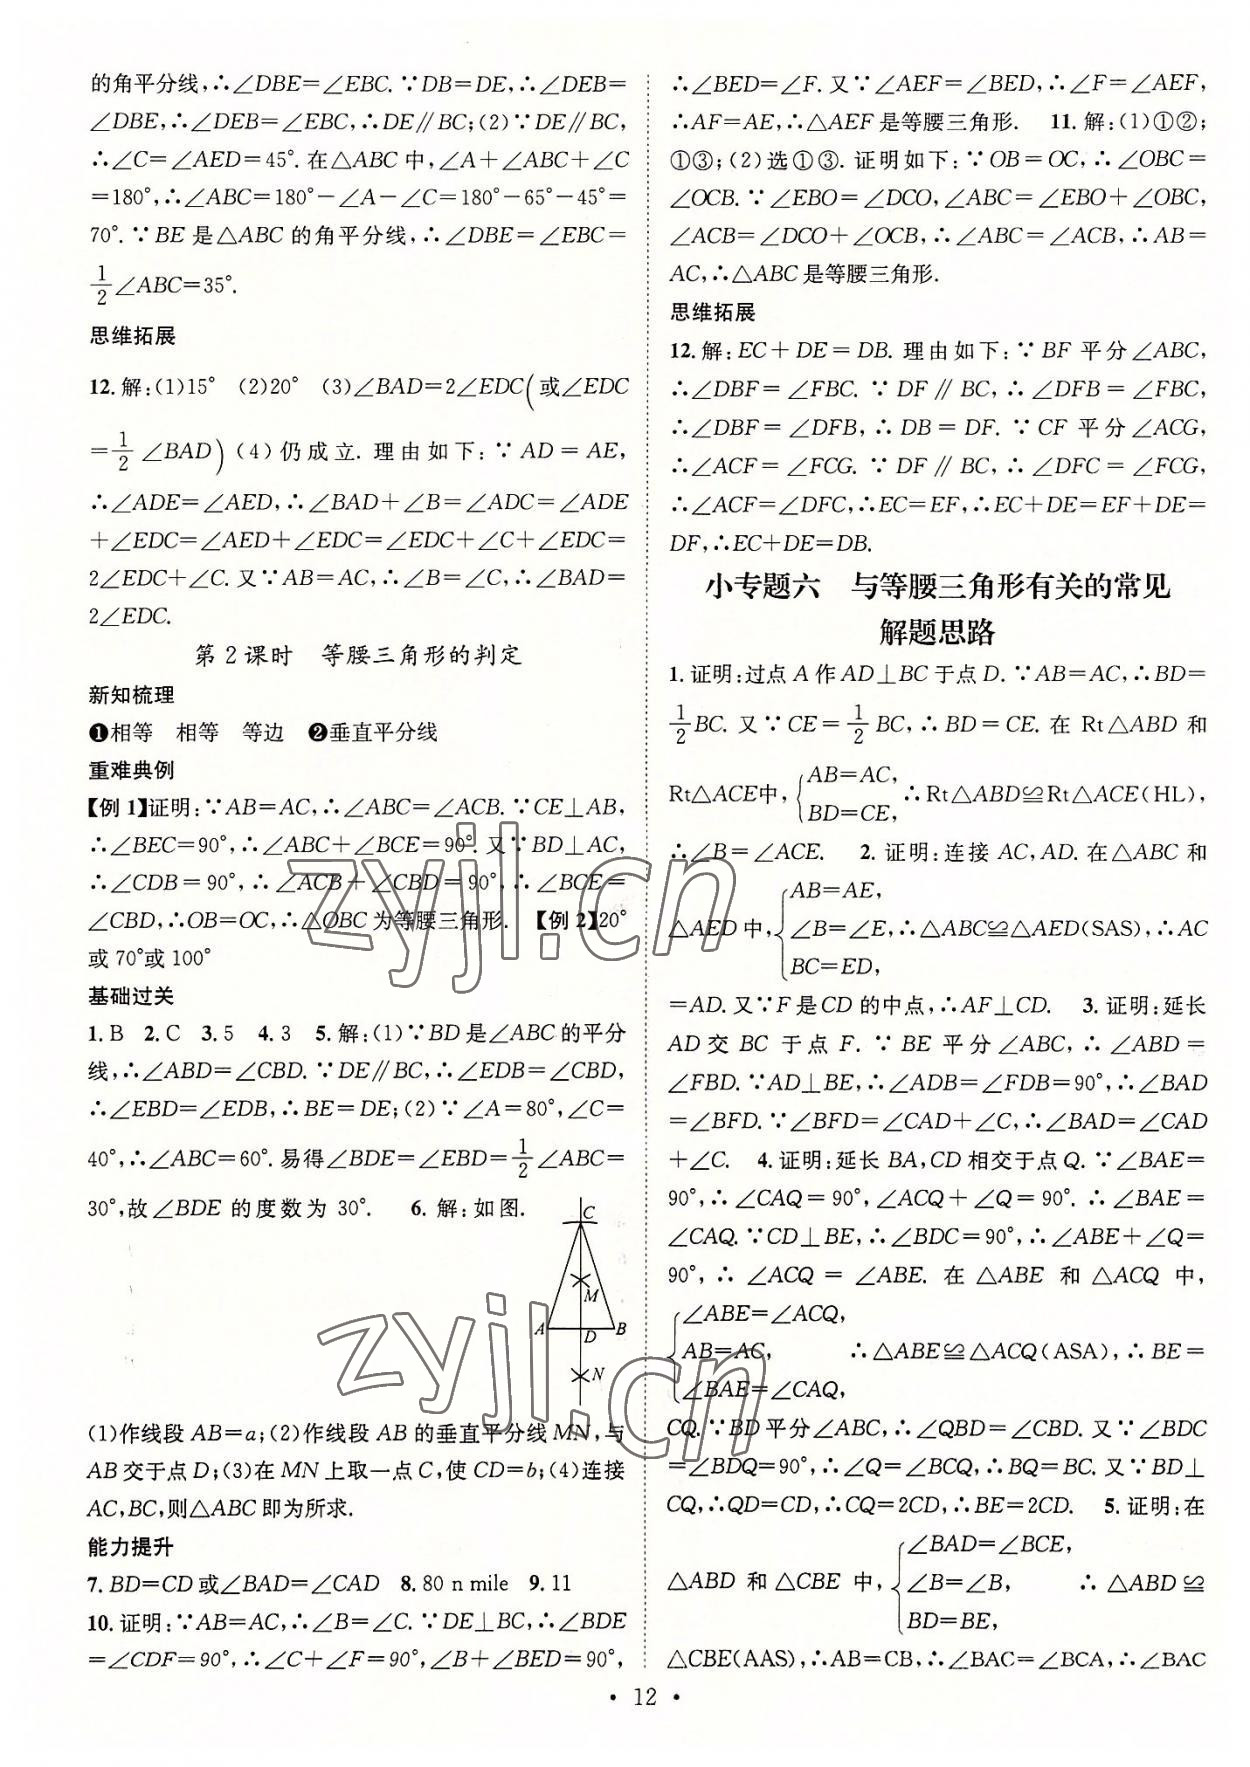 的角平分线,∴∠DBE=∠EBC.∵DB=DE,∴∠DEB=
∠DBE,∴∠DEB=∠EBC,∴DE∥BC;(2)∵DE∥BC,
∴∠C=∠AED=45°.在△ABC中,∠A+∠ABC+∠C
=180°,∴∠ABC=180°-∠A-∠C=180°-65°-45°=
70°.∵BE是△ABC的角平分线,∴∠DBE=∠EBC=
1/2∠ABC=35°.
思维拓展
12.解:(1)15° (2)20° (3)∠BAD=2∠EDC(或∠EDC
=1/2∠BAD) (4)仍成立.理由如下:∵AD=AE,
∴∠ADE=∠AED,∴∠BAD+∠B=∠ADC=∠ADE
+∠EDC=∠AED+∠EDC=∠EDC+∠C+∠EDC=
2∠EDC+∠C.又∵AB=AC,∴∠B=∠C,∴∠BAD=
2∠EDC.
第2课时 等腰三角形的判定
新知梳理
❶相等 相等 等边 ❷垂直平分线
重难典例
【例1】证明:∵AB=AC,∴∠ABC=∠ACB.∵CE⊥AB,
∴∠BEC=90°,∴∠ABC+∠BCE=90°.又∵BD⊥AC,
∴∠CDB=90°,∴∠ACB+∠CBD=90°,∴∠BCE=
∠CBD,∴OB=OC,∴△OBC为等腰三角形. 【例2】20°
或70°或100°
基础过关
1.B 2.C 3.5 4.3 5.解:(1)∵BD是∠ABC的平分
线,∴∠ABD=∠CBD.∵DE∥BC,∴∠EDB=∠CBD,
∴∠EBD=∠EDB,∴BE=DE;(2)∵∠A=80°,∠C=
40°,∴∠ABC=60°.易得∠BDE=∠EBD=1/2∠ABC=
30°,故∠BDE的度数为30°. 6.解:如图.
C
M
A D B
N
(1)作线段AB=a;(2)作线段AB的垂直平分线MN,与
AB交于点D;(3)在MN上取一点C,使CD=b;(4)连接
AC,BC,则△ABC即为所求.
能力提升
7.BD=CD或∠BAD=∠CAD 8.80 n mile 9.11
10.证明:∵AB=AC,∴∠B=∠C.∵DE⊥BC,∴∠BDE
=∠CDF=90°,∴∠C+∠F=90°,∠B+∠BED=90°,
∴∠BED=∠F.又∵∠AEF=∠BED,∴∠F=∠AEF,
∴AF=AE,∴△AEF是等腰三角形. 11.解:(1)①②;
①③;(2)选①③.证明如下:∵OB=OC,∴∠OBC=
∠OCB.∵∠EBO=∠DCO,∠ABC=∠EBO+∠OBC,
∠ACB=∠DCO+∠OCB,∴∠ABC=∠ACB,∴AB=
AC,∴△ABC是等腰三角形.
思维拓展
12.解:EC+DE=DB.理由如下:∵BF平分∠ABC,
∴∠DBF=∠FBC.∵DF∥BC,∴∠DFB=∠FBC,
∴∠DBF=∠DFB,∴DB=DF.∵CF平分∠ACG,
∴∠ACF=∠FCG.∵DF∥BC,∴∠DFC=∠FCG,
∴∠ACF=∠DFC,∴EC=EF,∴EC+DE=EF+DE=
DF,∴EC+DE=DB.
小专题六 与等腰三角形有关的常见
解题思路
1.证明:过点A作AD⊥BC于点D.∵AB=AC,∴BD=
1/2BC.又∵CE=1/2BC,∴BD=CE.在Rt△ABD和
Rt△ACE中,{AB=AC, BD=CE,∴Rt△ABD≌Rt△ACE(HL),
∴∠B=∠ACE. 2.证明:连接AC,AD.在△ABC和
△AED中,{AB=AE, ∠B=∠E, BC=ED,∴△ABC≌△AED(SAS),∴AC
=AD.又∵F是CD的中点,∴AF⊥CD. 3.证明:延长
AD交BC于点F.∵BE平分∠ABC,∴∠ABD=
∠FBD.∵AD⊥BE,∴∠ADB=∠FDB=90°,∴∠BAD
=∠BFD.∵∠BFD=∠CAD+∠C,∴∠BAD=∠CAD
+∠C. 4.证明:延长BA,CD相交于点Q.∵∠BAE=
90°,∴∠CAQ=90°,∠ACQ+∠Q=90°.∴∠BAE=
∠CAQ.∵CD⊥BE,∴∠BDC=90°,∴∠ABE+∠Q=
90°,∴∠ACQ=∠ABE.在△ABE和△ACQ中,
{∠ABE=∠ACQ,
AB=AC, ∴△ABE≌△ACQ(ASA),∴BE=
∠BAE=∠CAQ,
CQ.∵BD平分∠ABC,∴∠QBD=∠CBD.又∵∠BDC
=∠BDQ=90°,∴∠Q=∠BCQ,∴BQ=BC.又∵BD⊥
CQ,∴QD=CD,∴CQ=2CD,∴BE=2CD. 5.证明:在
△ABD和△CBE中,{∠BAD=∠BCE, ∠B=∠B, BD=BE, ∴△ABD≌
△CBE(AAS),∴AB=CB,∴∠BAC=∠BCA,∴∠BAC
• 12 •
zyjl.cn
zyjl.cn